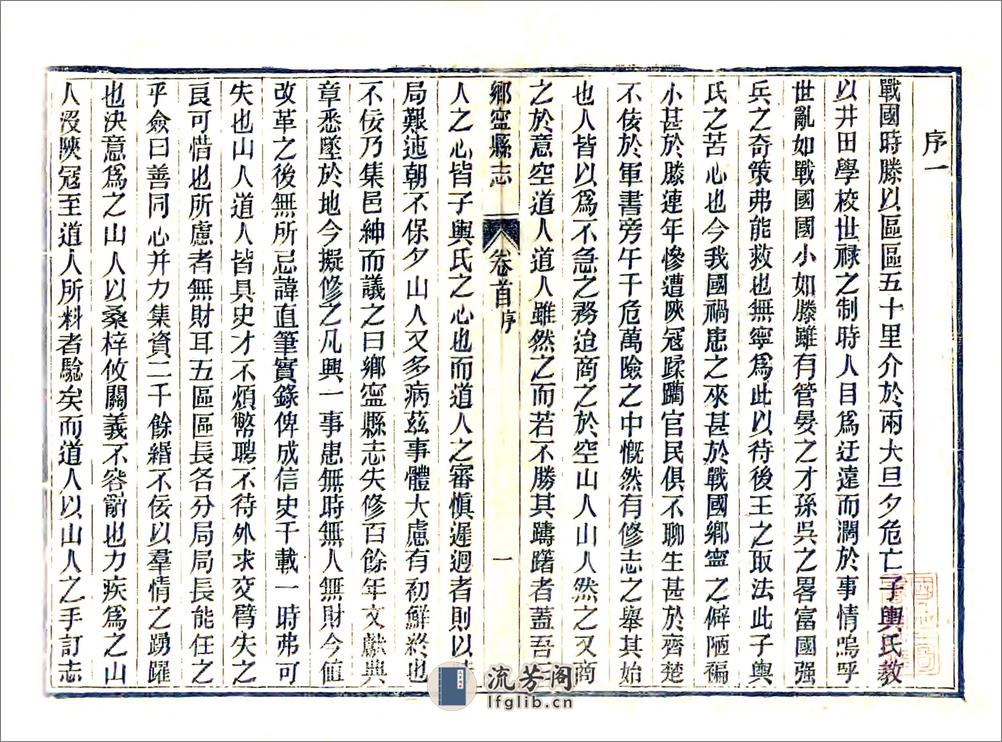 序一
戰國時滕以區區五十里介於兩大旦夕危亡子輿氏教
以井田學校世祿之制時人目爲迂遠而濶於事情嗚呼
世亂如戰國國小如滕雖有管晏之才孫吳之畧富國强
兵之奇策弗能救也無寧爲此以待後王之取法此子輿
氏之苦心也今我國禍患之來甚於戰國鄉寧之僻陋褊
小甚於滕連年慘遭陝寇蹂躪官民俱不聊生甚於齊楚
不佞於軍書旁午千危萬險之中慨然有修志之舉其始
也人皆以爲不急之務迨商之於空山人山人然之又商
之於意空道人道人雖然之而若不勝其躊躇者蓋吾
鄉寧縣志
卷首
序
一
人之心皆子輿氏之心也而道人之審慎遲迴者則以
局艱迍朝不保夕山人又多病茲事體大慮有初鮮終也
不佞乃集邑紳而議之曰鄉寧縣志失修百餘年文獻典
章悉墜於地今擬修之凡興一事患無時無人無財今值
改革之後無所忌諱直筆實錄俾成信史千載一時弗可
失也山人道人皆具史才不煩幣聘不待外求交臂失之
良可惜也所慮者無財耳五區區長各分局局長能任之
乎僉曰善同心并力集資二千餘緡不佞以羣情之踴躍
也決意爲之山人以桑梓攸關義不容辭也力疾爲之山
人沒陝寇至道人所料者驗矣而道人以山人之手訂志
流芳阁
lfglib.cn